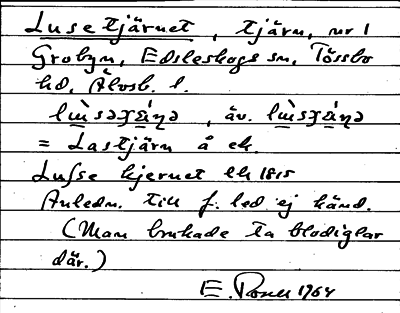 Lusetjärnet, tjärn, nr 1
Grobyn, Edsleskogs sn, Tössbo
hd, Älvsb. l.
lɯ̀səχǽṇə, äv. lɯ̀sχǽṇə
= Lastjärn å ek.
Lusse kjernet lk 1815
Anledn. till f. led ej känd.
(Man brukade ta blodiglar
där.)
E. 1964